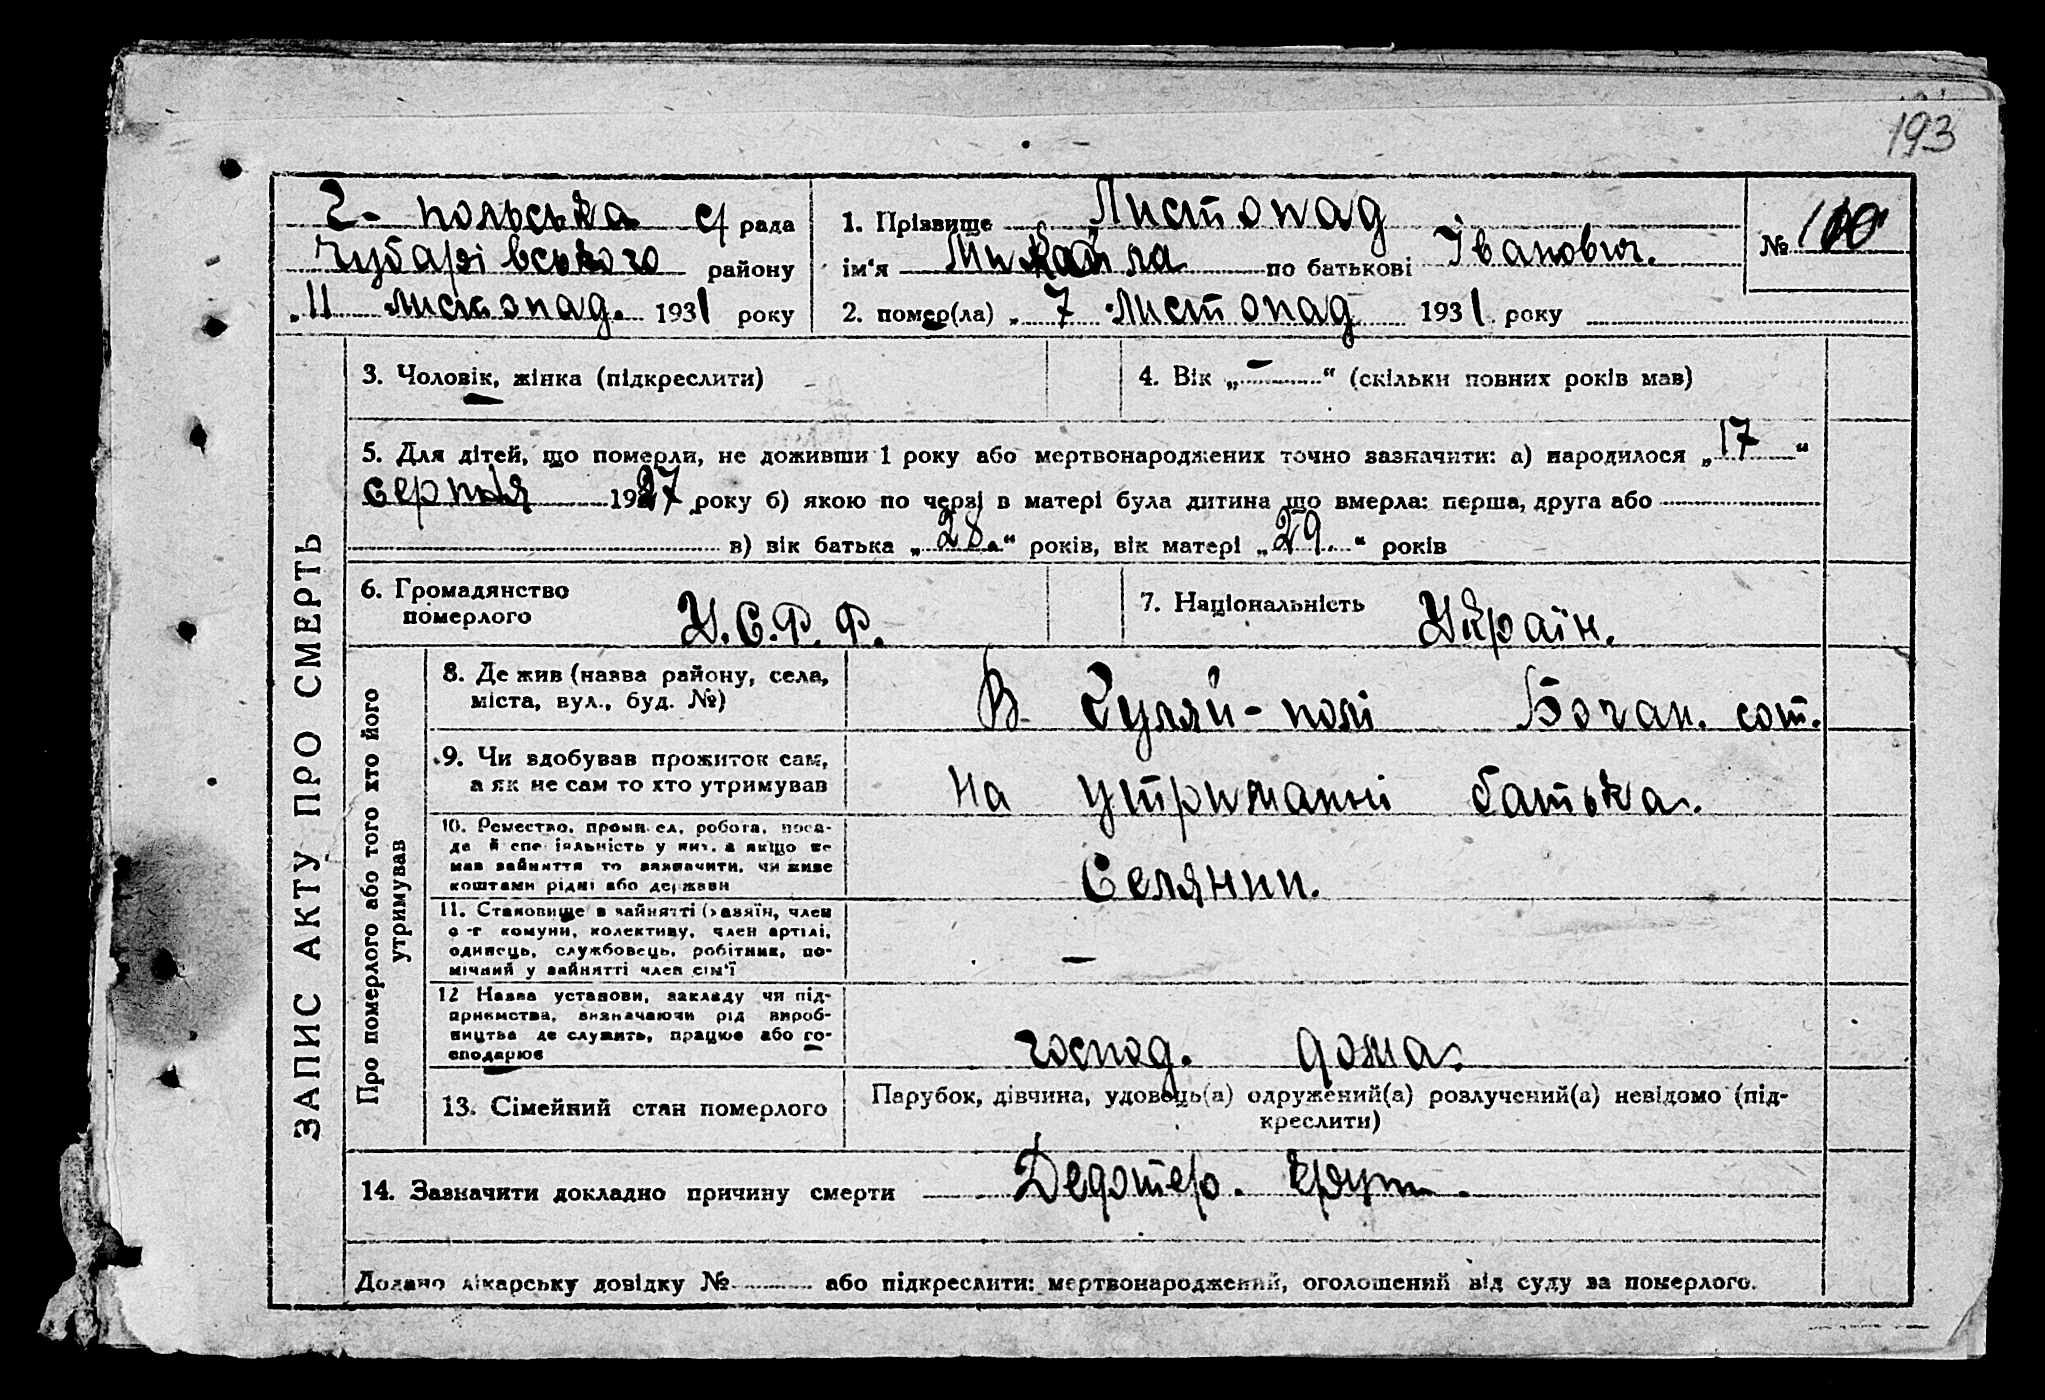 193
Г-польська с/рада
Чубарівського району
„11 листопад. 1931 року
1. Прізвище Листопад
ім'я Михайла по батькові Іванович.
№ 100
2. помер(ла) „ 7 листопад 1931 року
ЗАПИС АКТУ ПРО СМЕРТЬ
3. Чоловік, жінка (підкреслити)
4. Вік „ – “ (скільки повних років мав)
5. Для дітей, що померли, не доживши 1 року або мертвонароджених точно зазначити: а) народилося „ 17 “
серпня 1927 року б) якою по черзі в матері була дитина що вмерла: перша, друга або
в) вік батька „ 28 “ років, вік матері „ 29. “ років
6. Громадянство
померлого
У.С.Р.Р.
7. Національність Україн.
Про померлого або того хто його
утримував
8. Де жив (назва району, села,
міста, вул., буд. №)
В Гуляй-полі Боган. сот.
9. Чи здобував прожиток сам,
а як не сам то хто утримував
На утриманні батька.
10. Ремество, промисел, робота, поса-
да й спеціяльність у них, а якщо не
мав зайняття то зазначити, чи живе
коштами рідні або держави
Селянин.
11. Становище в зайнятті (хазяїн, член
с-г комуни, колективу, член артілі,
одинець, службовець, робітник, по-
мічний у зайнятті член сім'ї
–
12 Назва установи, закладу чи під-
приємства, визначаючи рід вироб-
ництва де служить, працює або го-
сподарює
господ. дома.
13. Сімейний стан померлого
Парубок, дівчина, удовець(а) одружений(а) розлучений(а) невідомо (під-
креслити)
14. Зазначити докладно причину смерти
Додано лікарську довідку № або підкреслити: мертвонароджений, оголошений від суду за померлого.